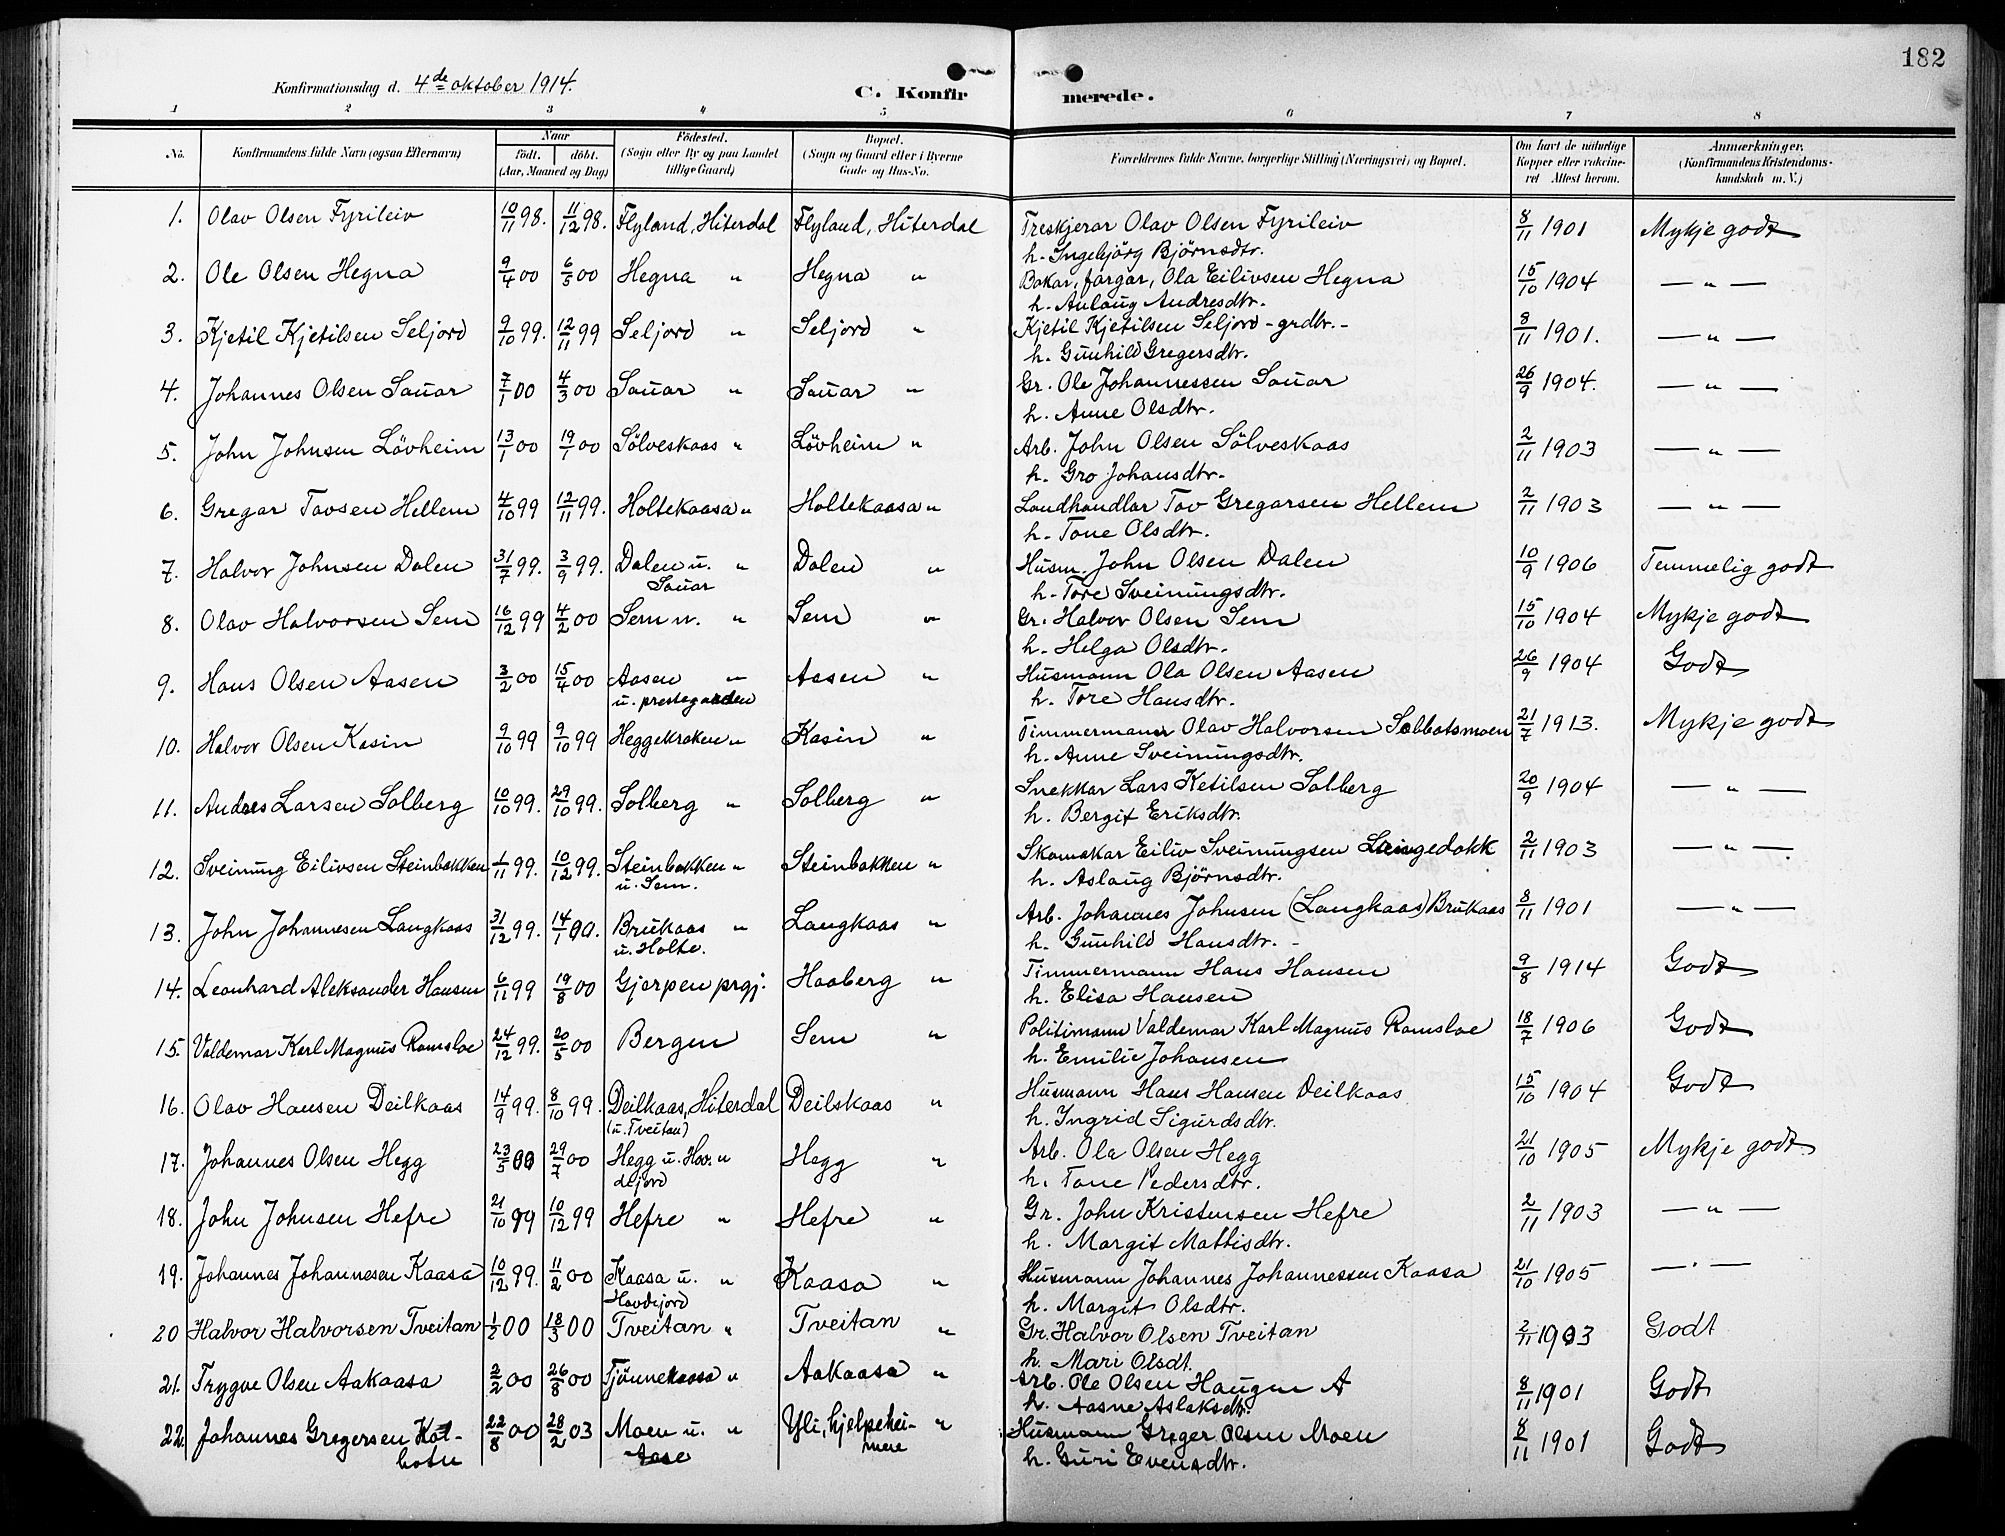 182
Konfirmationsdag d. 4de oktober 1914.
C. Konfirmerede.
1 2 3 4 5 6 7 8
No. | Konfirmandens fulde Navn (ogsaa Efternavn) | Naar født. døbt. (Aar, Maaned og Dag) | Födested. (Sogn eller By og paa Landet tillige Gaard) | Bopæl. (Sogn og Gaard eller i Byerne Gade og Hus-No. | Forældrenes fulde Navne, borgerlige Stilling (Næringsvei) og Bopæl. | Om havt de naturlige Kopper eller vaccineret Attest herom. | Anmærkninger. (Konfirmandens Kristendomskundskab m. V.)
1. Olav Olsen Fyrileiv 10/11 98. 11/12 98. Flyland, Hiterdal Flyland, Hiterdal Treskjerar Olav Olsen Fyrileiv 8/11 1901 Mykje godt
h. Ingebjörg Björnsdtr.
2. Ole Olsen Hegna 9/4 00 6/5 00 Hegna " Hegna " Bakar, fargar, Ola Eilivsen Hegna 15/10 1904 — " —
h. Anlaug Andresdtr.
3. Kjetil Kjetilsen Seljord 9/10 99. 12/11 99 Seljord " Seljord " Kjetil Kjetilsen Seljord - grdbr. - 8/11 1901. — " —
h. Gunhild Gregersdtr.
4. Johannes Olsen Sauar 7/1 00 4/3 00 Sauar " Sauar " Gr. Ole Johannessen Sauar 26/9 1904. — " —
h. Anne Olsdtr.
5. John Johnsen Lövheim 13/1 00 19/1 00 Sölveskaas " Lövheim " Arb. John Olsen Sölveskaas 2/11 1903 — " —
h. Gro Johansdtr.
6. Gregar Tovsen Hellem 4/10 99 12/11 99. Holtekaasa " Holtekaasa " Landhandlar Tov Gregarsen Hellem 2/11 1903 — " —
h. Tone Olsdtr.
7. Halvor Johnsen Dalen 31/7 99. 3/9 99. Dalen u. " Dalen " Husm. John Olsen Dalen 10/9 1906 Temmelig godt
Sauar h. Tore Sveinungsdtr.
8. Olav Halvorsen Sem 16/12 99 4/2 00 Sem n. " Sem " Gr. Halvor Olsen Sem 15/10 1904 Mykje godt
h. Helga Olsdtr.
9. Hans Olsen Aasen 3/2 00 15/4 00 Aasen " Aasen " Husmann Ola Olsen Aasen 26/9 1904 Godt
u. prestegarden h. Tore Hansdtr.
10. Halvor Olsen Kasin 9/10 99 9/10 99 Heggekroken " Kasin " Timmermann Olav Halvorsen Solbotsmoen 21/7 1913. Mykje godt
h. Anne Sveinungsdtr.
11. Andres Larsen Solberg 10/10 99. 29/10 99. Solberg " Solberg " Snekkar Lars Ketilsen Solberg 20/9 1904 — " —
h. Bergit Eriksdtr.
12. Sveinung Eilivsen Steinbakken 1/11 99. 10/12 99. Steinbakken " Steinbakken " Skomakar Eiliv Sveinungsen 2/11 1903 — " —
u. Sem. h. Aslaug Björnsdtr.
13. John Johannesen Langkaas 31/12 99. 14/1 00. Brukaas " Langkaas " Arb. Johannes Johnsen (Langkaas) Brukaas 8/11 1901 — " —
u. Holte. h. Gunhild Hansdtr. -
14. Leonhard Aleksander Hansen 6/11 99 19/8 00 Gjerpen prgj. Haaberg " Timmermann Hans Hansen 9/8 1914 Godt
h. Elisa Hansen
15. Valdemar Karl Magnus Ramsloe 24/12 99. 20/5 00 Bergen Sem " Politimann Valdemar Karl Magnus Ramsloe 18/7 1906 Godt
h. Emilie Johansen
16. Olav Hansen Deilkaas 14/9 99. 8/10 99. Deilkaas, Hiterdal Deilskaas " Husmann Hans Hansen Deilkaas 15/10 1904 Godt
(u. Tveitan) h. Ingrid Sigurdsdtr.
17. Johannes Olsen Hegg 23/5 00 29/7 00 Hegg u. Hov- " Hegg " Arb. Ola Olsen Hegg 21/10 1905 Mykje godt
dejord h. Tone Pedersdtr.
18. John Johnsen Hefre 21/10 99 10/12 99 Hefre " Hefre " Gr. John Kristensen Hefre 2/11 1903 — " —
h. Margit Mattisdtr.
19. Johannes Johannesen Kaasa 10/12 99. 11/2 00 Kaasa u. " Kaasa " Husmann Johannes Johannessen Kaasa 21/10 1905 — " —
Hovdejord h. Margit Olsdtr.
20 Halvor Halvorsen Tveitan 1/2 00 18/3 00 Tveitan " Tveitan " Gr. Halvor Olsen Tveitan 2/11 1903 Godt
h. Mari Olsdt.
21. Trygve Olsen Aakaasa 2/2 00 26/8 00 Tjönnekaasa " Aakaasa " Arb. Ole Olsen Haugen A 8/11 1901 Godt
h. Aasne Aslaksdtr.
22. Johannes Gregersen Kal- 22/8 00 28/2 03 Moen u. " Yli, hjelpehei- " Husmann Greger Olsen Moen 8/11 1901 Godt
botn Aase mere h. Guri Evensdtr.